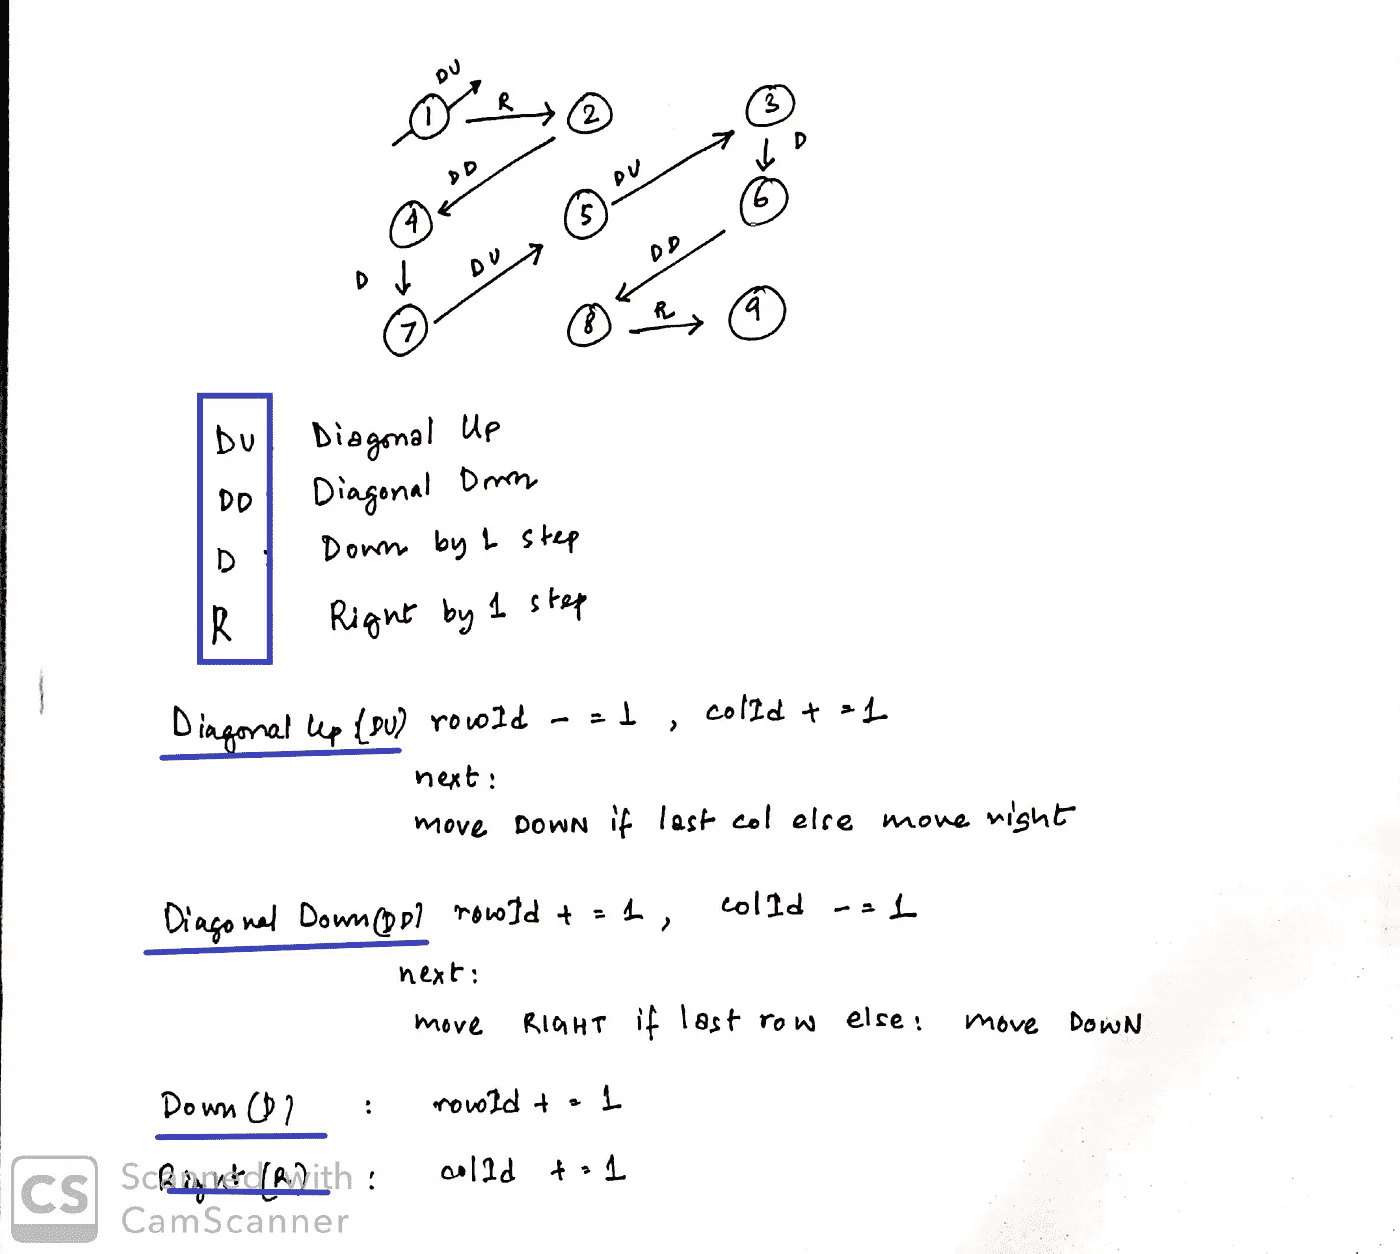 DU
1 R 2 3
D
DD DU
4 5 6
D DU DD
7 8 R 9
DU Diagonal Up
DD Diagonal Down
D Down by 1 step
R Right by 1 step
Diagonal Up (DU) rowId -=1 , colId +=1
next:
move DOWN if last col else move right
Diagonal Down (DD) rowId +=1, colId -=1
next:
move RIGHT if last row else: move DOWN
Down (D) : rowId +=1
Right (R) : colId +=1
CS Scanned with
CamScanner